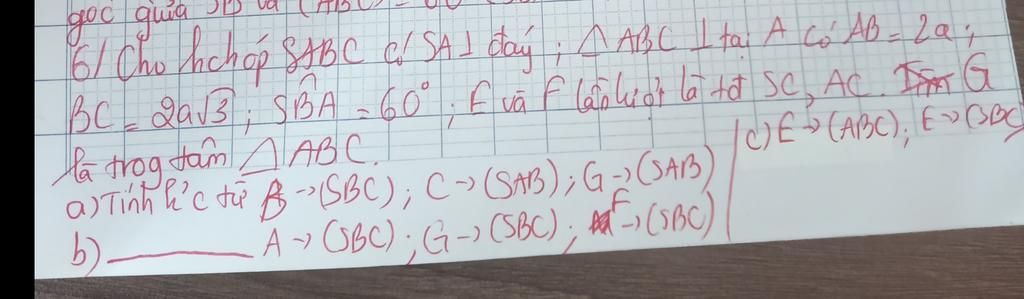 góc giữa SB và (ABC) = 60°
6/ Cho hchóp SABC có SA ⊥ đáy; △ ABC ⊥ tại A có AB = 2a;
BC = 2a√3; SB̂A = 60°; E và F lần lượt là tđ SC, AC. G
là trog tâm △ ABC.
a) Tính k/c từ B → (SBC); C → (SAB); G → (SAB)
b) ______ A → (SBC); G → (SBC); F → (SBC)
c) E → (ABC); E → (SBC)